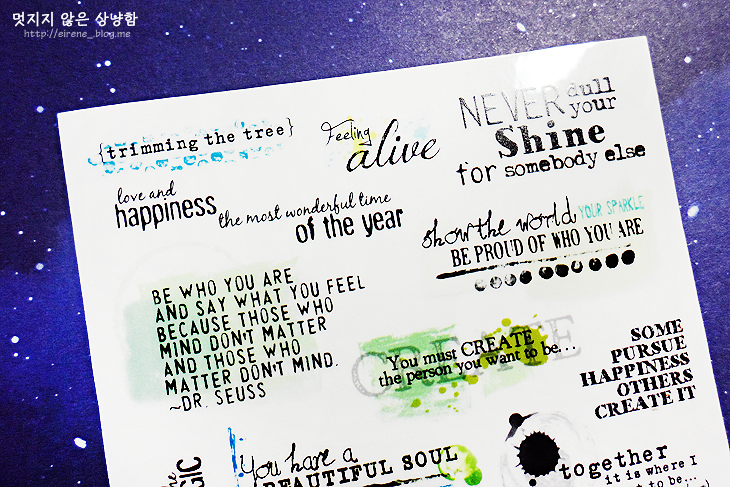 멋지지 않은 상냥함
http://eirene_.blog.me
{trimming the tree}
Feeling
alive
NEVER dull
your
Shine
for somebody else
love and
happiness
the most wonderful time
of the year
show the world YOUR SPARKLE
BE PROUD OF WHO YOU ARE
BE WHO YOU ARE
AND SAY WHAT YOU FEEL
BECAUSE THOSE WHO
MIND DON'T MATTER
AND THOSE WHO
MATTER DON'T MIND.
~DR. SEUSS
CREATE
You must CREATE
the person you want to be...
SOME
PURSUE
HAPPINESS
OTHERS
CREATE IT
You have a
BEAUTIFUL SOUL
together
it is where I